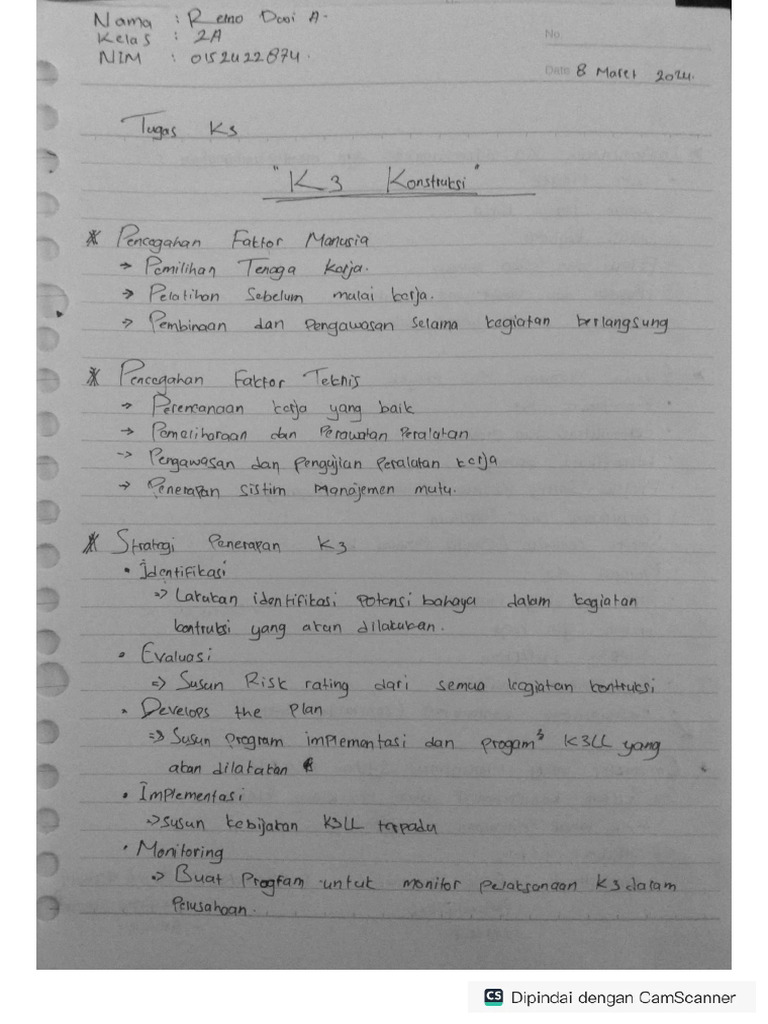 Nama : Remo Dwi A.
Kelas : 2A
NIM : 0152422874.
No.
Date 8 Maret 2024.
Tugas K3
"K3 Konstruksi"
* Pencegahan Faktor Manusia
→ Pemilihan Tenaga Kerja.
→ Pelatihan Sebelum mulai kerja.
→ Pembinaan dan Pengawasan selama kegiatan berlangsung
* Pencegahan Faktor Teknis
→ Perencanaan kerja yang baik
→ Pemeliharaan dan Perawatan Peralatan
→ Pengawasan dan pengujian Peralatan kerja
→ Penerapan sistim Manajemen mutu.
* Strategi Penerapan K3
• Identifikasi
⇒ Lakukan identifikasi potensi bahaya dalam kegiatan
kontruksi yang akan dilakukan.
• Evaluasi
⇒ Susun Risk rating dari semua kegiatan kontruksi
• Develops the Plan
⇒ Susun program implementasi dan progam² K3LL yang
akan dilakakan
• Implementasi
⇒ susun kebijakan K3LL terpadu
• Monitoring
⇒ Buat Program untuk monitor pelaksanaan K3 dalam
Perusahaan.
CS Dipindai dengan CamScanner